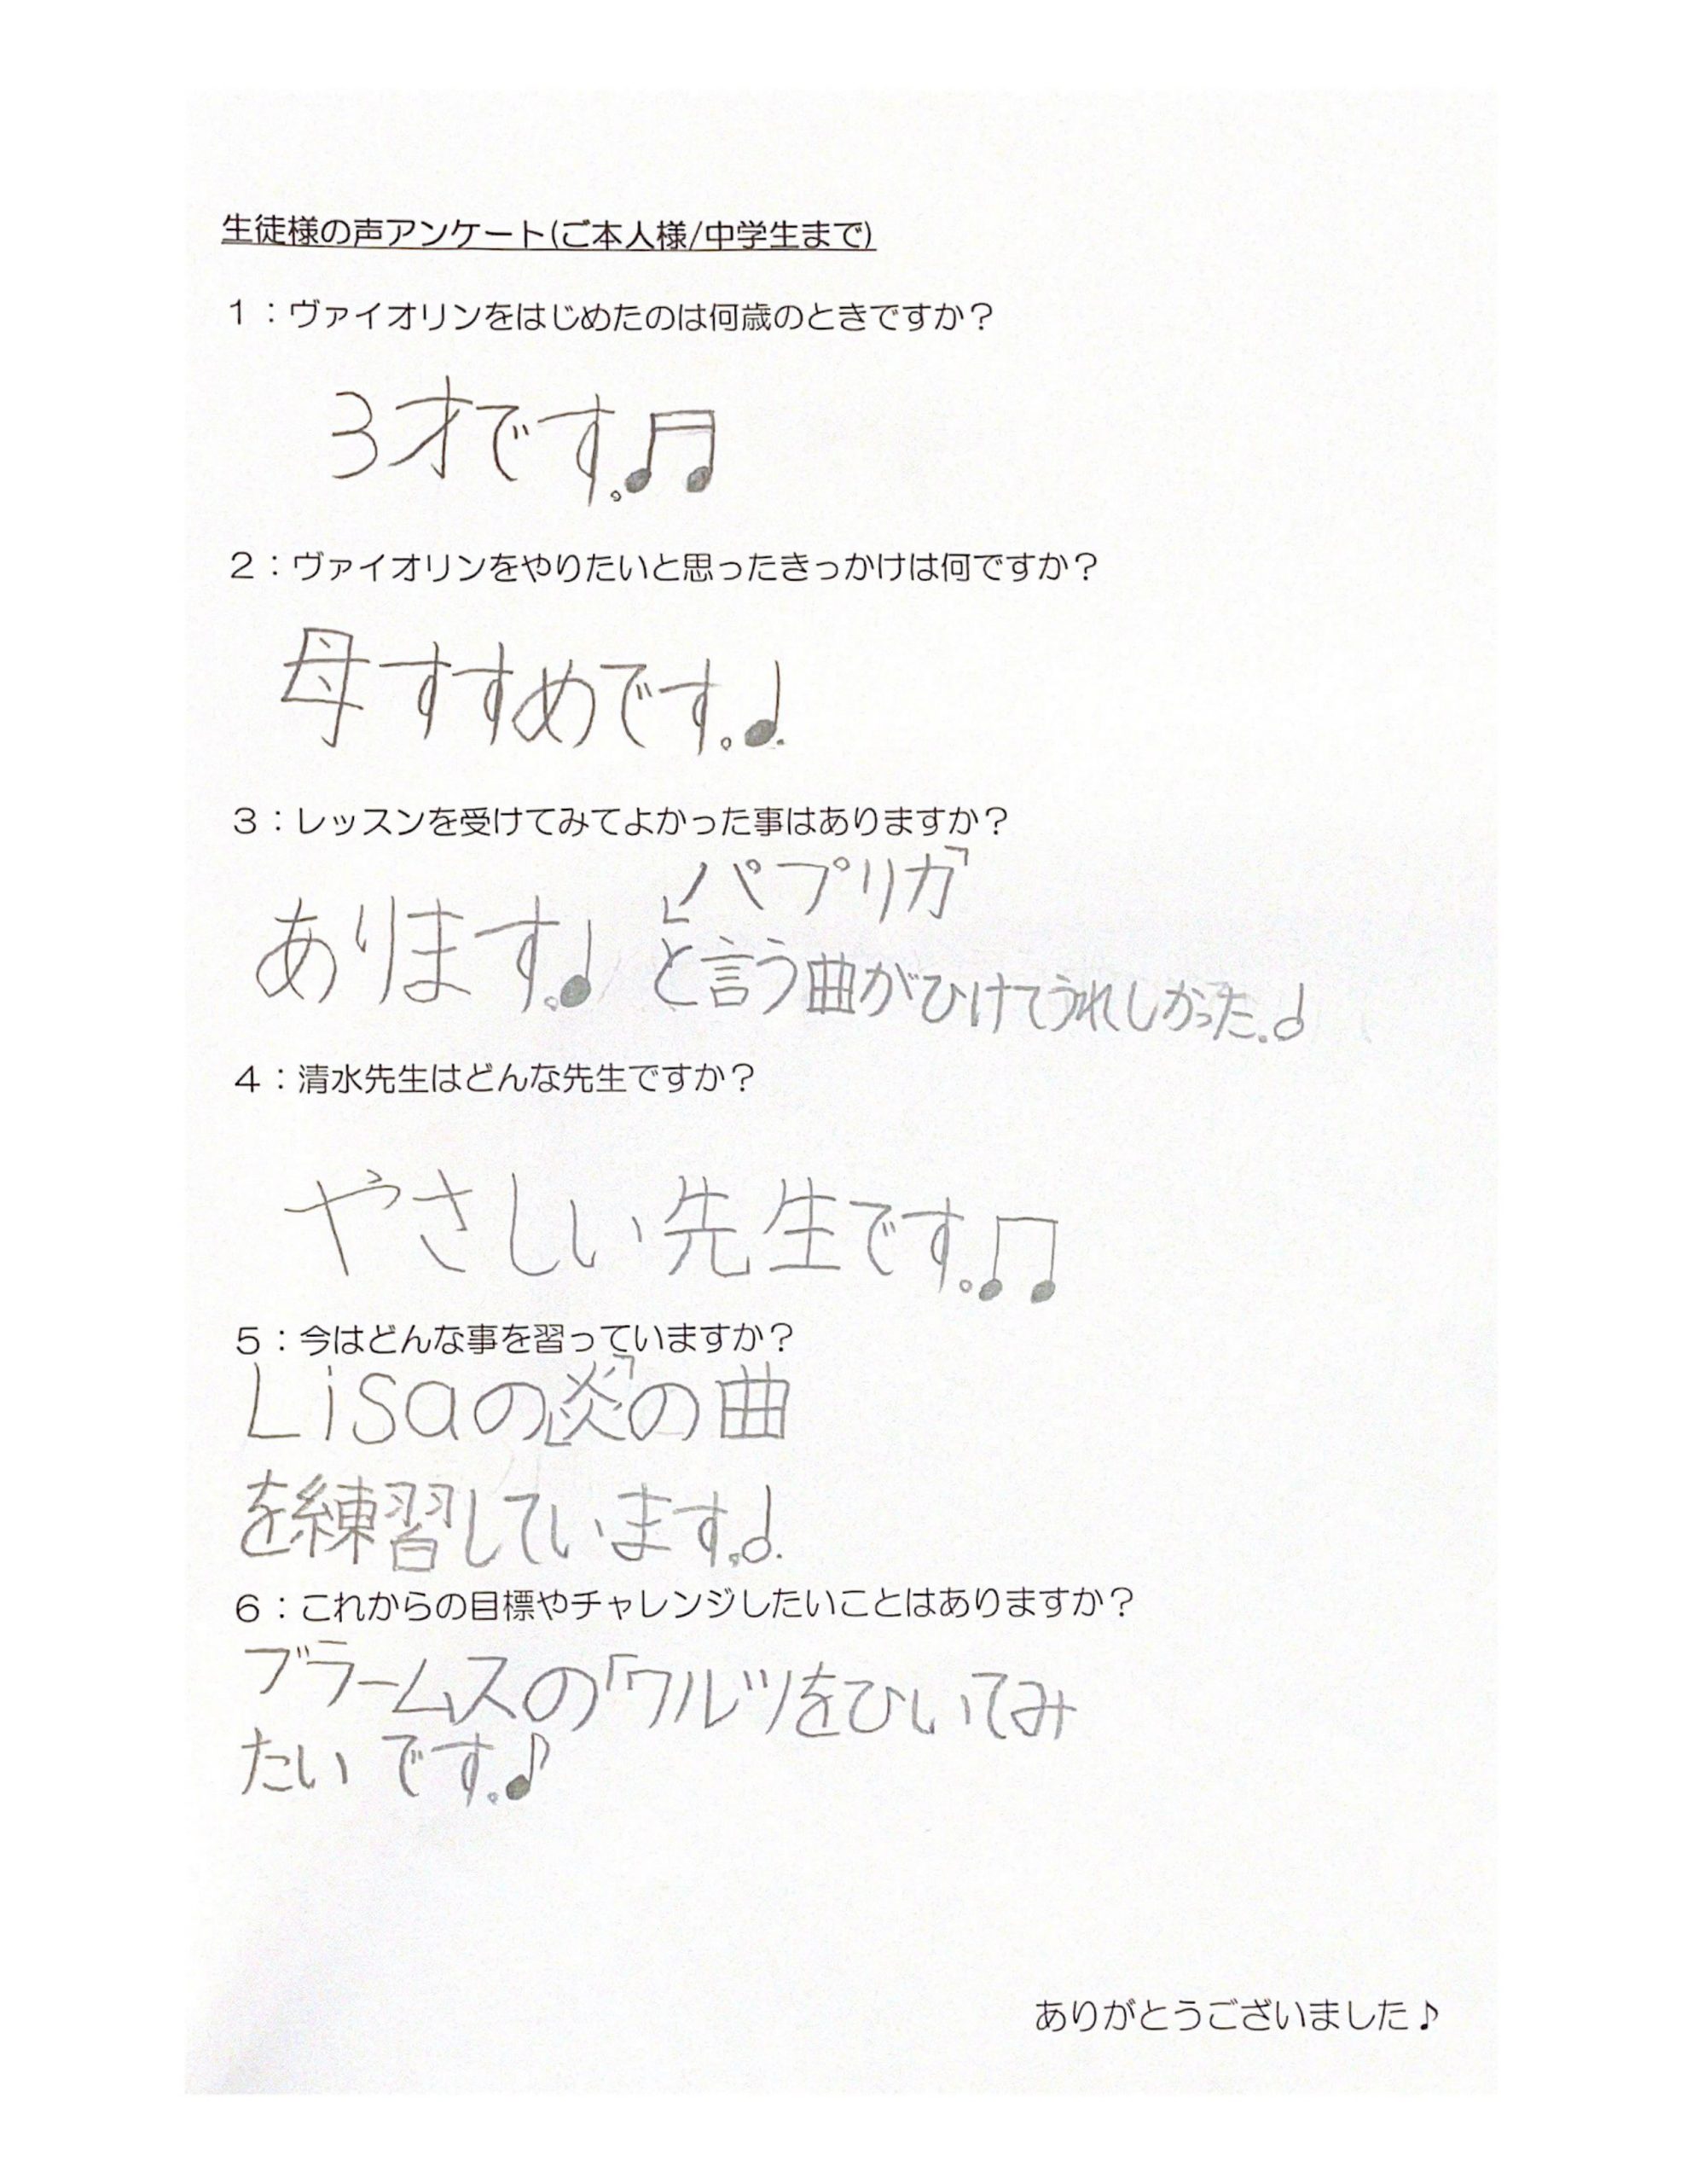 生徒様の声アンケート(ご本人様/中学生まで)
1：ヴァイオリンをはじめたのは何歳のときですか？
3才です。♬
2：ヴァイオリンをやりたいと思ったきっかけは何ですか？
母すすめです。♩.
3：レッスンを受けてみてよかった事はありますか？
「パプリカ」
あります。♩ と言う曲がひけてうれしかった。𝅗𝅥
4：清水先生はどんな先生ですか？
やさしい先生です。♫
5：今はどんな事を習っていますか？
Lisaの「炎」の曲
を練習しています。𝅗𝅥.
6：これからの目標やチャレンジしたいことはありますか？
ブラームスの「ワルツをひいてみ
たいです。♪
ありがとうございました♪